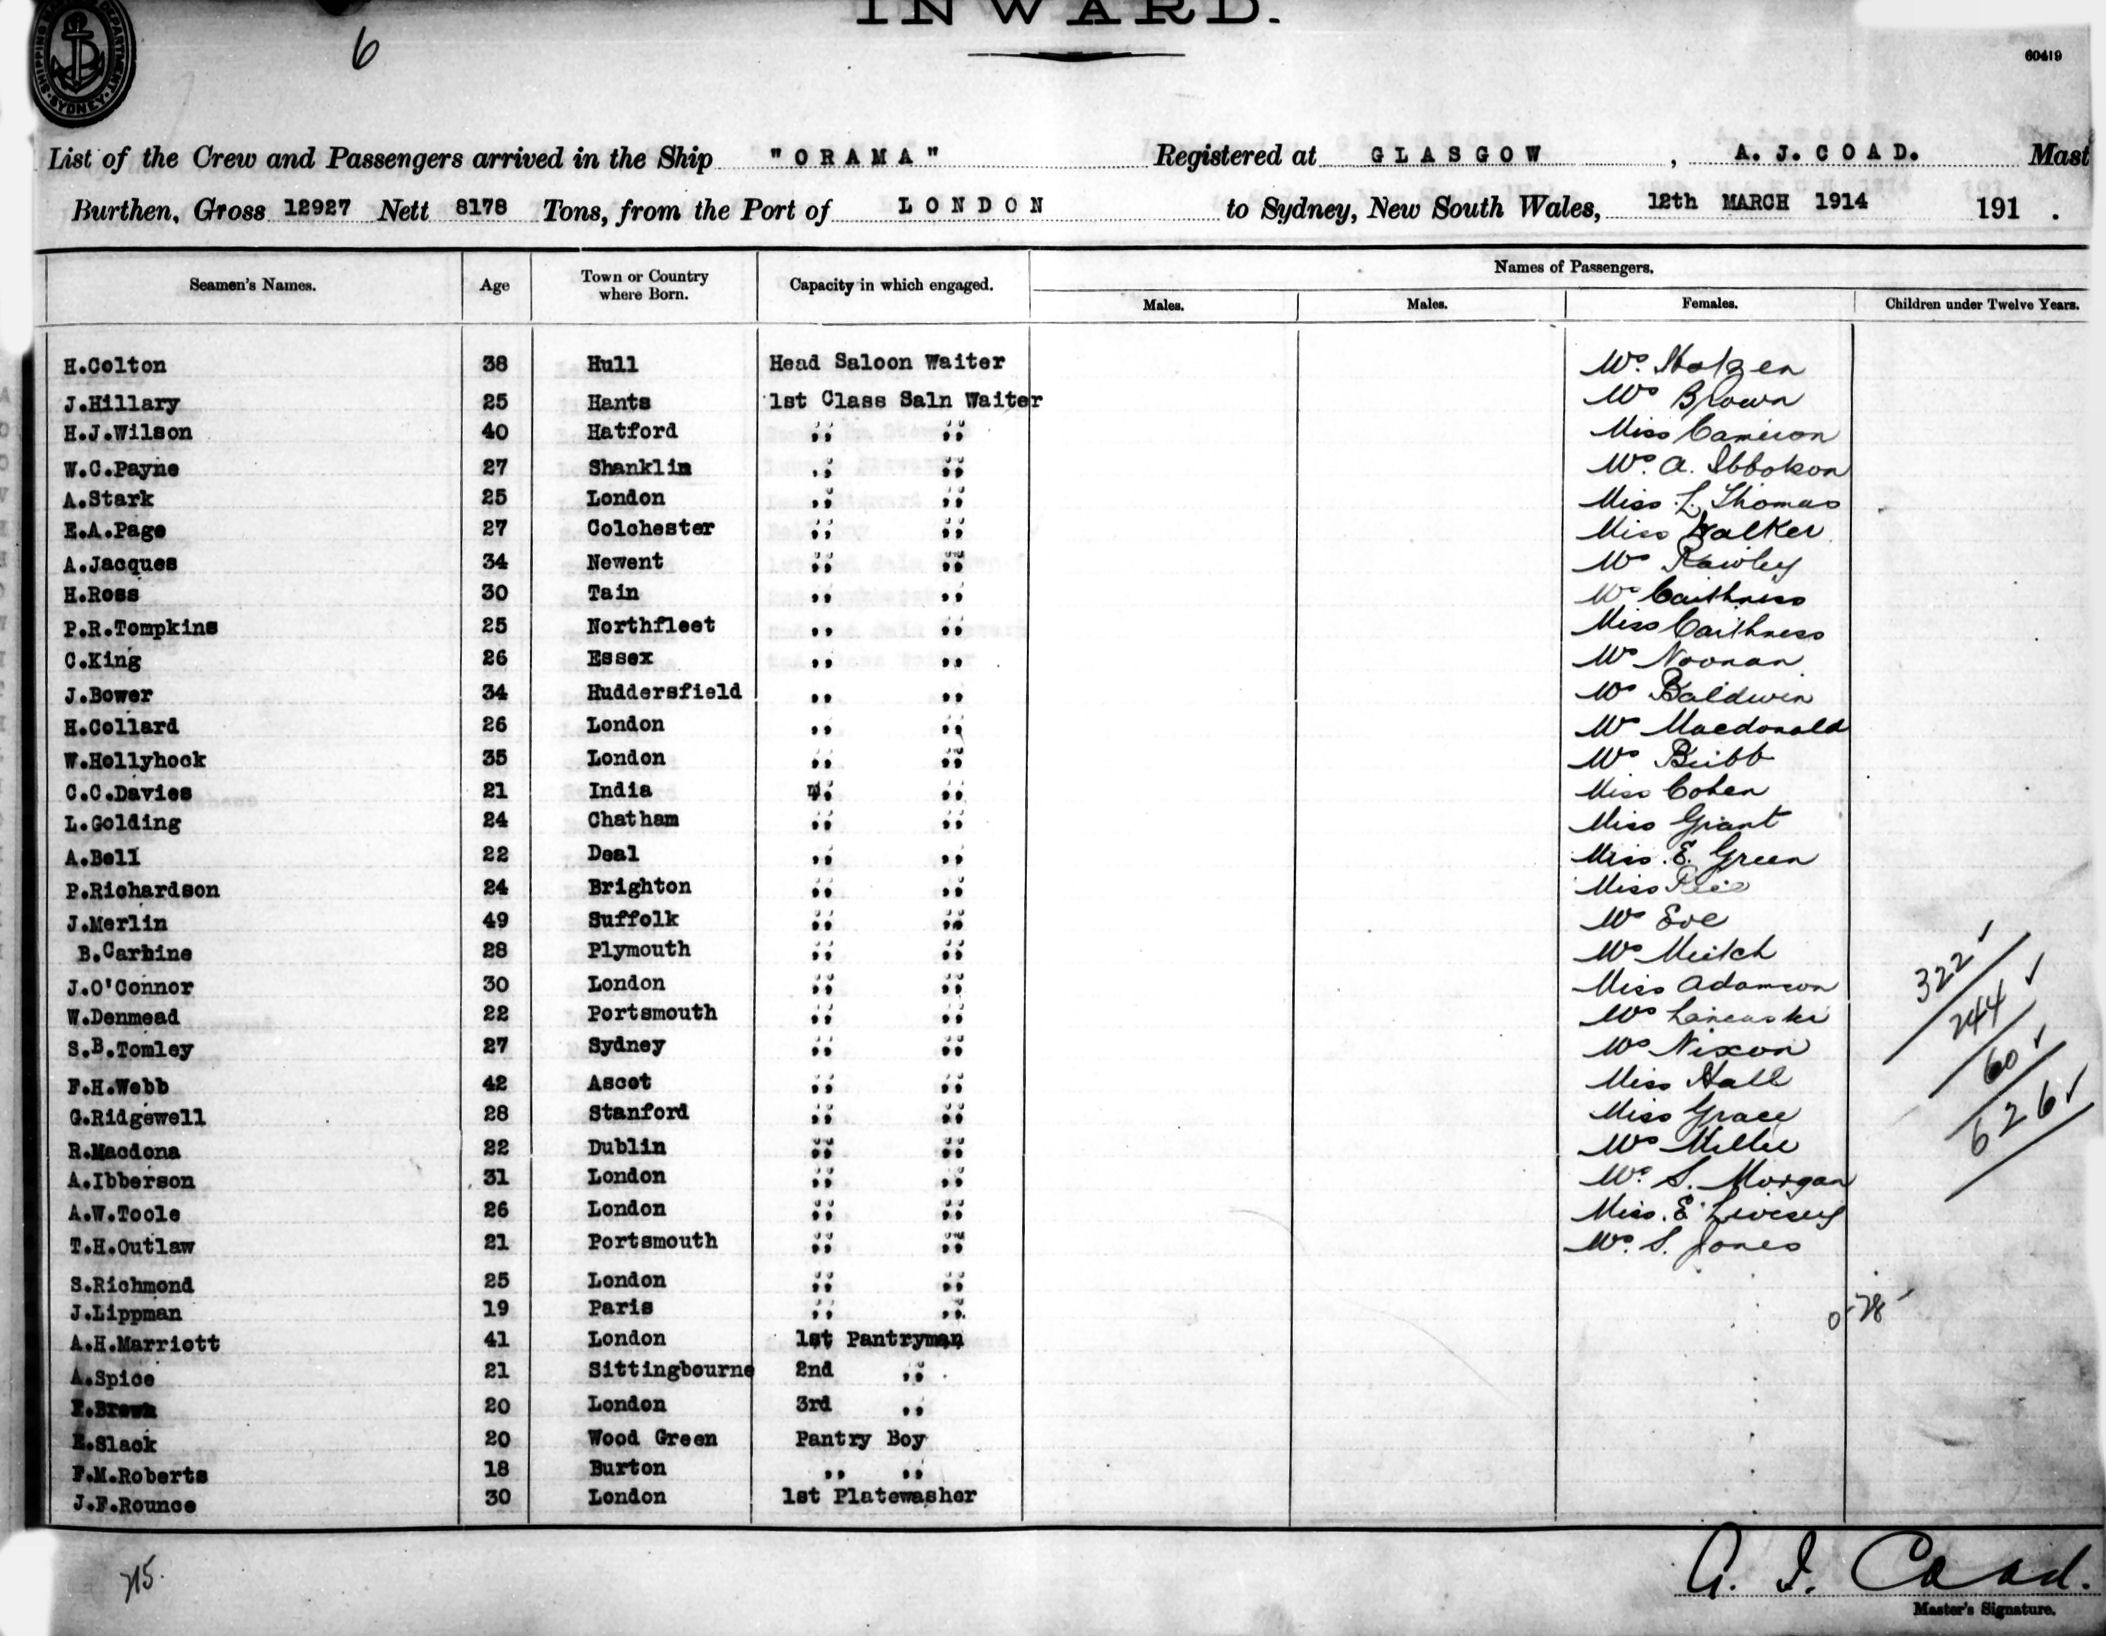 INWARD.
SHIPPING DEPARTMENT SYDNEY
6
60419
List of the Crew and Passengers arrived in the Ship "ORAMA" Registered at GLASGOW, A.J.COAD. Mast
Burthen, Gross 12927 Nett 8178 Tons, from the Port of LONDON to Sydney, New South Wales, 12th MARCH 1914 191 .
Names of Passengers.
Seamen's Names. Age Town or Country where Born. Capacity in which engaged. Males. Males. Females. Children under Twelve Years.
H.Colton 38 Hull Head Saloon Waiter Mrs.
J.Hillary 25 Hants 1st Class Saln Waiter Mrs Brown
H.J.Wilson 40 Hatford ,, ,, Miss Cameron
W.C.Payne 27 Shanklin ,, ,, Mrs. A.
A.Stark 25 London ,, ,, Miss L. Thomas
E.A.Page 27 Colchester ,, ,, Miss Walker
A.Jacques 34 Newent ,, ,, Mrs Rowley
H.Ross 30 Tain ,, ,, Mrs Caithness
P.R.Tompkins 25 Northfleet ,, ,, Miss Caithness
C.King 26 Essex ,, ,, Mrs Noonan
J.Bower 34 Huddersfield ,, ,, Mrs Baldwin
H.Collard 26 London ,, ,, Mrs Macdonald
W.Hollyhock 35 London ,, ,, Mrs Bribb
C.C.Davies 21 India ,, ,, Miss Cohen
L.Golding 24 Chatham ,, ,, Miss Grant
A.Bell 22 Deal ,, ,, Miss. E. Green
P.Richardson 24 Brighton ,, ,, Miss
J.Merlin 49 Suffolk ,, ,, Mrs Eve
B.Carbine 28 Plymouth ,, ,, Mrs
J.O'Connor 30 London ,, ,, Miss Adamson
322
W.Denmead 22 Portsmouth ,, ,, Mrs Lancaster
244
S.B.Tomley 27 Sydney ,, ,, Mrs Nixon
60
F.H.Webb 42 Ascot ,, ,, Miss Hall
G.Ridgewell 28 Stanford ,, ,, Miss Grace
626
R.Macdona 22 Dublin ,, ,, Mrs Miller
A.Ibberson 31 London ,, ,, Mrs. S. Morgan
A.W.Toole 26 London ,, ,, Miss. E. Livesey
T.H.Outlaw 21 Portsmouth ,, ,, Mrs. S. Jones
S.Richmond 25 London ,, ,,
J.Lippman 19 Paris ,, ,,
0-28-
A.H.Marriott 41 London 1st Pantryman
A.Spice 21 Sittingbourne 2nd ,,
Brown 20 London 3rd ,,
E.Slack 20 Wood Green Pantry Boy
F.M.Roberts 18 Burton ,, ,,
J.F.Rounce 30 London 1st Platewasher
A. J. Coad.
Master's Signature.